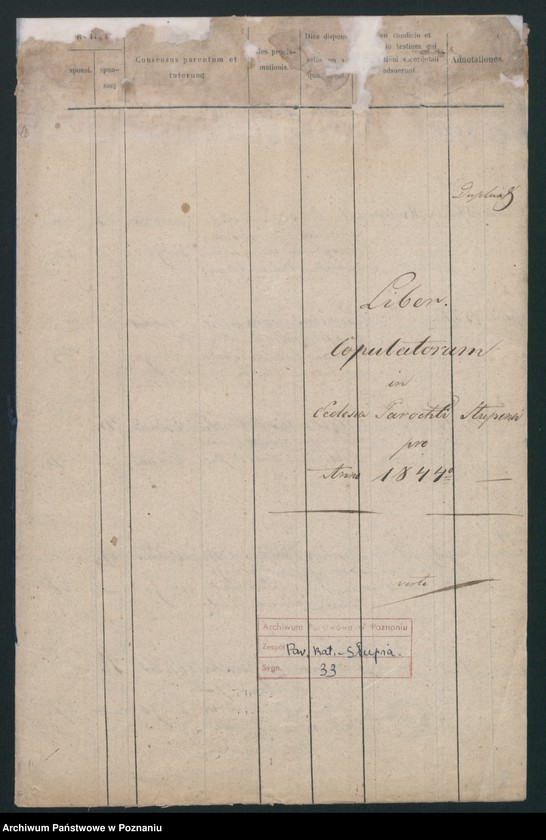 sponsi.
spon-
Consensus parentum et
tutorum
mationis.
Dies dispen
condicio et
testium qui
adfuerunt.
Adnotationes.
Duplicat
Liber
Copulatorum
in
Ecclesia Parochli Slupensi
pro
Anno 1844º
verte
Archiwum Państwowe w Poznaniu
Zespół Par. Kat. - Słupia.
Sygn. 33
Archiwum Państwowe w Poznaniu